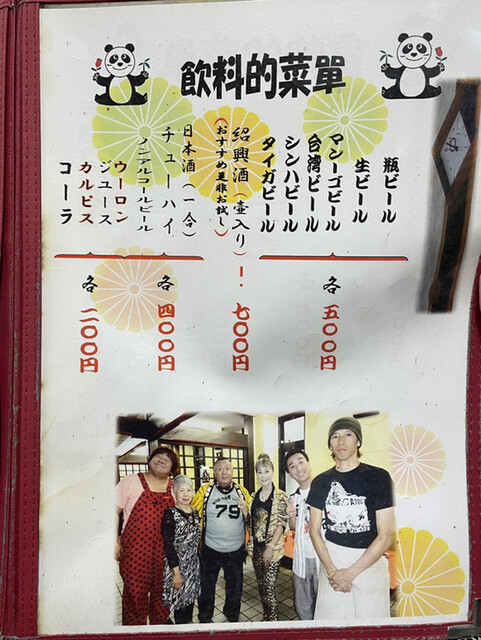 飲料的菜單
瓶ビール
生ビール
マンゴビール
台湾ビール
シンハビール
タイガビール
各 五〇〇円
紹興酒（壺入り）
（おすすめ是非お試し）
一. 七〇〇円
日本酒（一合）
チューハイ
ノニアルコールビール
各 四〇〇円
ウーロン
ジュース
カルピス
コーラ
各 二〇〇円
79